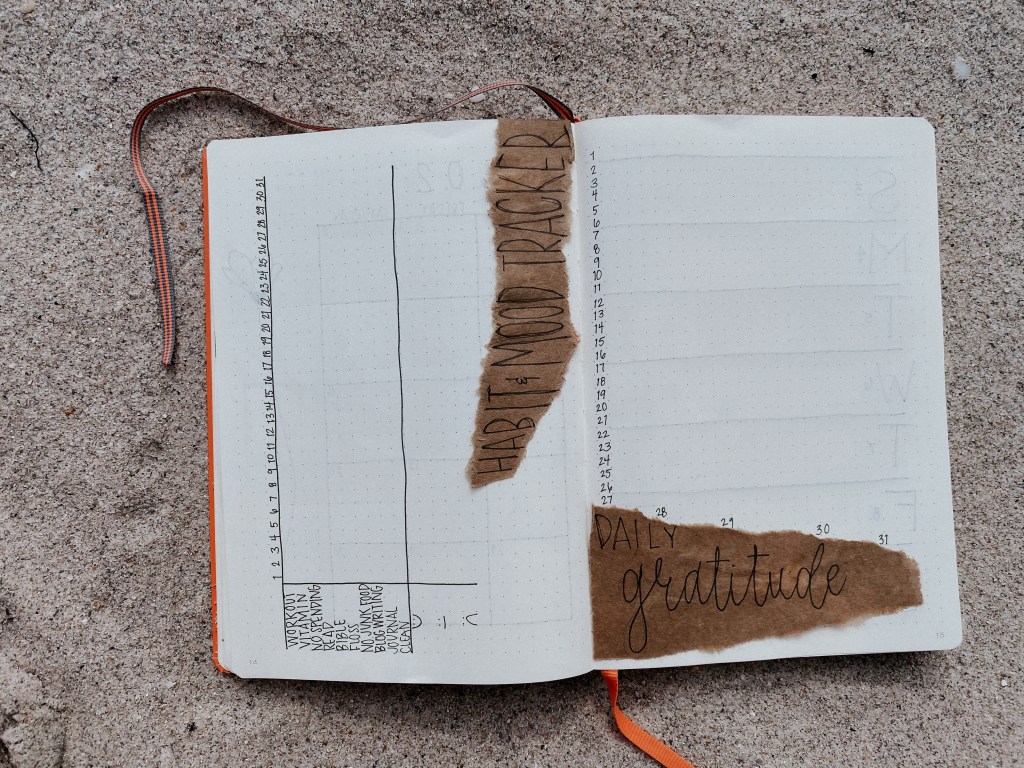 1 2 3 4 5 6 7 8 9 10 11 12 13 14 15 16 17 18 19 20 21 22 23 24 25 26 27 28 29 30 31
WORKOUT
VITAMIN
NO SPENDING
READ
BIBLE
FLOSS
NO JUNK FOOD
BLOG WRITING
JOURNAL
CLEAN
:)
:|
:(
HABIT & MOOD TRACKER
14
1
2
3
4
5
6
7
8
9
10
11
12
13
14
15
16
17
18
19
20
21
22
23
24
25
26
27
28 29 30 31
DAILY
gratitude
15